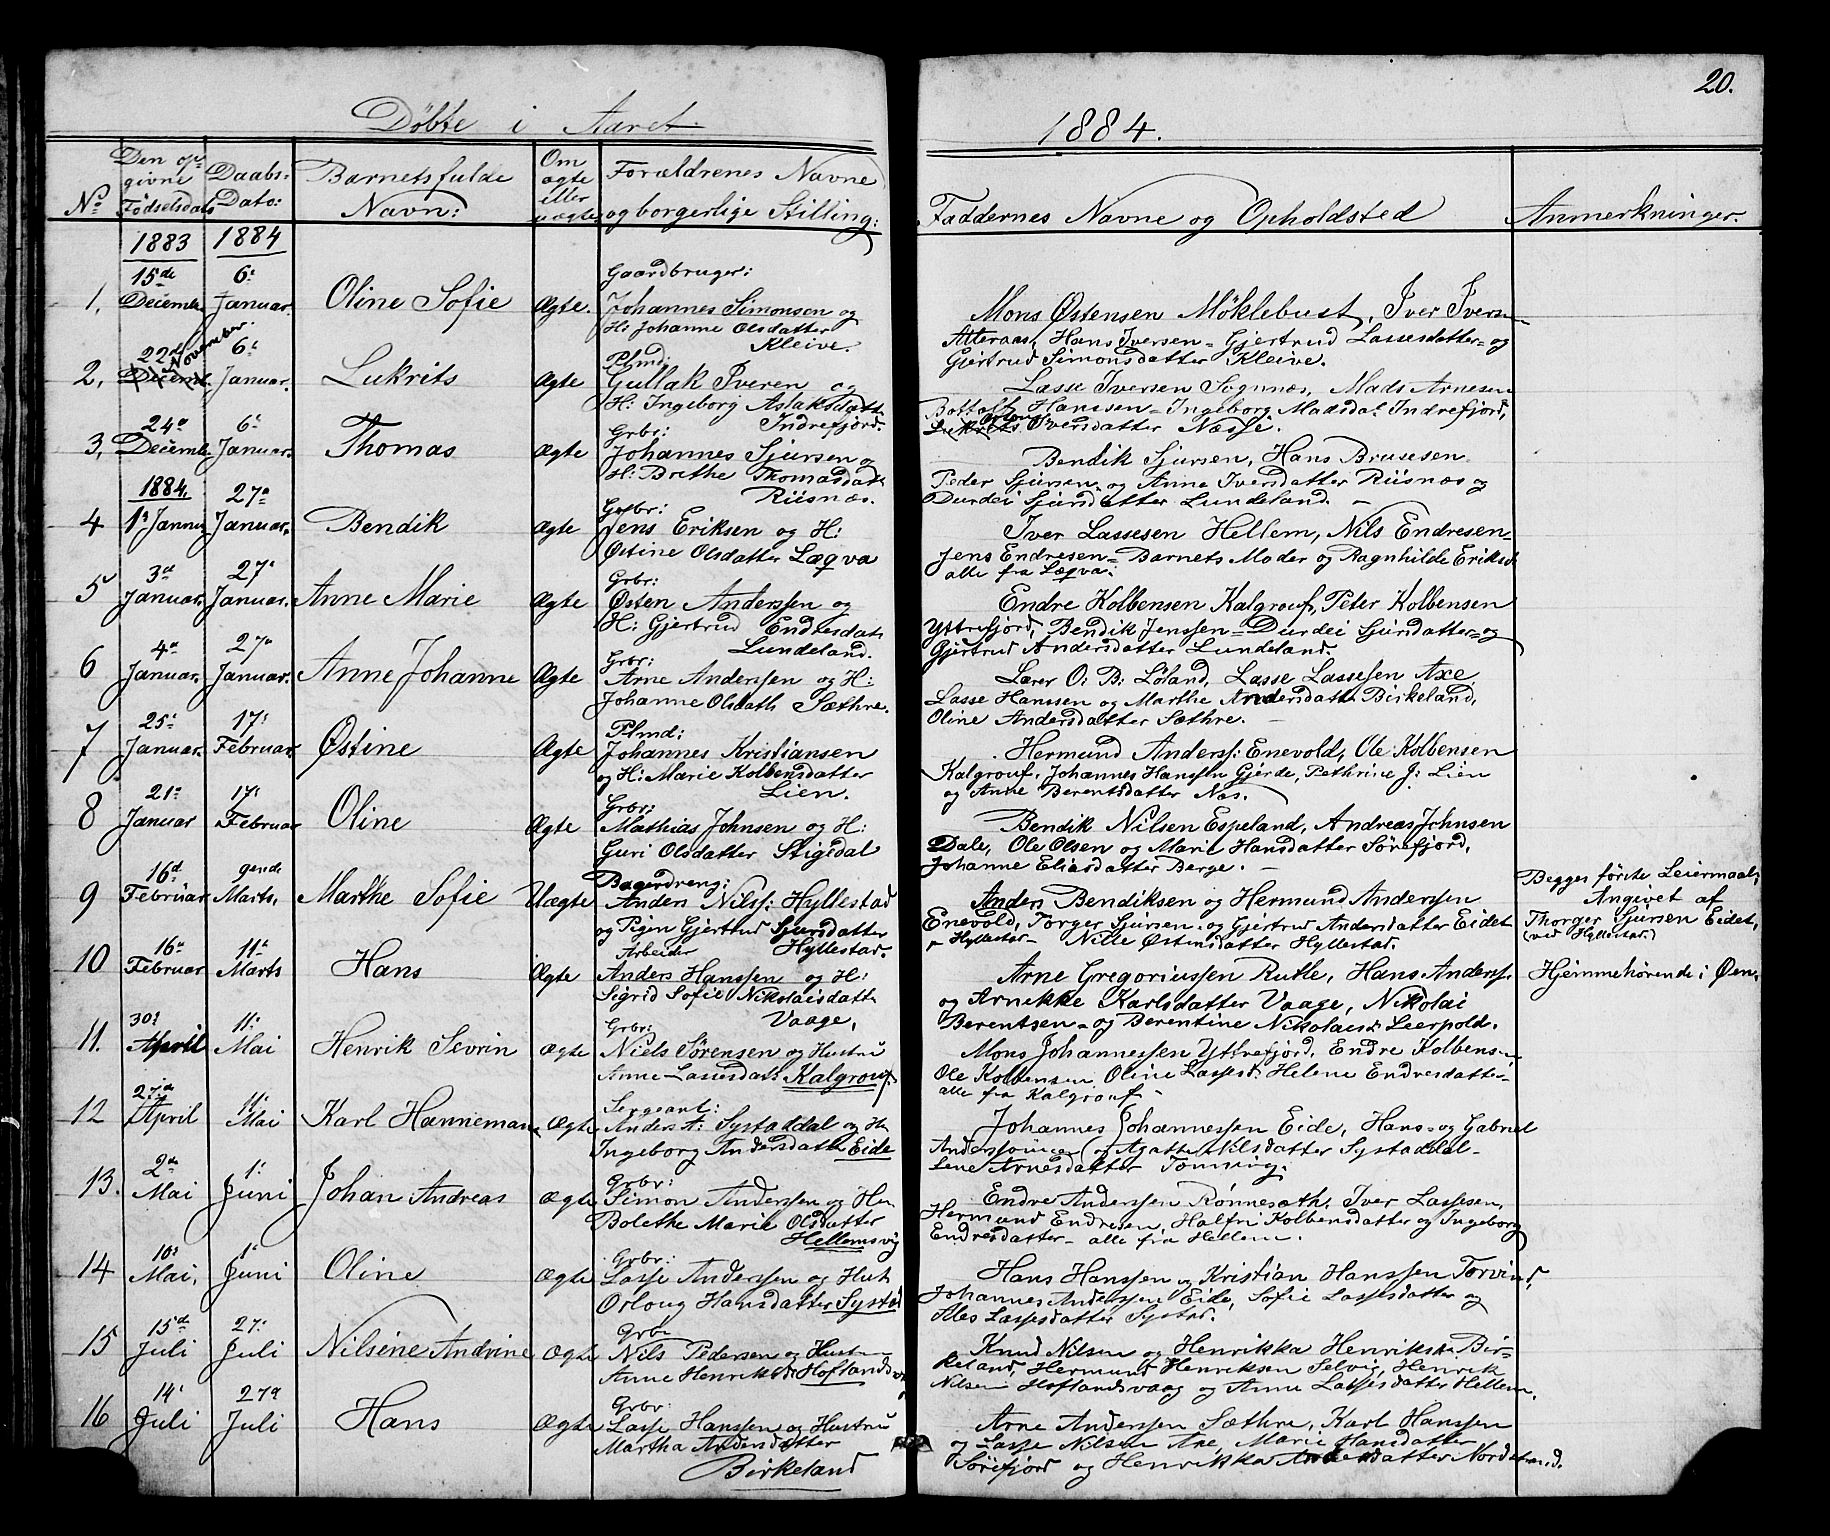 20.
Døbte i Aaret
1884.
No
Den op-
givne
Fødselsdato
Daabs-
Dato:
Barnets fulde
Navn:
Om
ægte
eller
uægte
Forældrenes Navne
og borgerlige Stilling:
Faddernes Navne og Opholdsted
Anmerkninger.
1883
1884
1, 15de Decemb. 6: Januar. Oline Sofie Ægte.
Gaardbruger:
Johannes Simonsen og
H: Johanne Olsdatter
Kleive.
Mons Østensen Möklebust, Iver Ivers-
Atteraas, Hans Iversen = Gjertrud Lassesdatter = og
Gjertrud Simonsdatter Kleive.
2, 22de November. Decemb. 6: Januar. Lukrits Ægte
Plmd:
Gullak Iveren og
H: Ingeborg Aslaksdatt
Indrefjord.
Lasse Iversen Sognnæs, Mads Arnesen
Bottolf Hanssen = Ingeborg Madsdat Indrefjord,
Lukrits Iversdatter Næsse.
3, 24de Decemb. 6: Januar. Thomas Ægte
Grbr:
Johannes Sjursen og
H: Brithe Thomasdat
Riisnæs.
Bendik Sjursen, Hans Brusesen
Peder Sjursen og Anne Iversdatter Riisnæs og
Durdei Sjursdatter Lundeland.
1884.
4 1: Januar 27de Januar. Bendik Ægte
Grbr:
Jens Eriksen og H:
Østine Olsdatter Læqva
Iver Lassesen Hellem, Nils Endresen
Jens Endresen = Barnets Moder og Ragnhilde Eriksd
alle fra Læqva.
5 3de Januar. 27: Januar. Anne Marie Ægte
Grbr:
Østen Anderssen og
H: Gjertrud Endresdat
Lundeland.
Endre Kolbensen Kalgrouf, Peter Kolbensen
Yttrefjord, Bendik Jenssen = Durdei Sjursdatter = og
Gjertrud Andersdatter Lundeland.
6 4de Januar. 27de Januar. Anne Johanne Ægte
Grbr:
Arne Anderssen og H:
Johanne Olsdatt Sæthre.
Lærer O: B: Løland, Lasse Lassesen Axe,
Lasse Hanssen og Marthe Andersdatt Birkeland,
Oline Andersdatter Sæthre.
7 25: Januar. 17: Februar. Østine Ægte
Plmd:
Johannes Kristiansen
og H: Marie Kolbensdatter
Lien.
Hermund Anderss: Enevold, Ole Kolbensen
Kalgrouf, Johannes Hanssen Gjerde, Pethrine J: Lien
og Anne Berentsdatter Næs.
8 21: Januar 17: Februar Oline Ægte
Grbr:
Mathias Johnsen og H:
Guri Olsdatter Stigedal
Bendik Nilsen Espeland, Andreas Johnsen
Dale, Ole Olsen og Marie Hansdatter Sørefjord,
Johanne Eliasdatter Berge.
9 16de Februar gende Marts, Marthe Sofie Uægte
Bagerdreng:
Anders Nilss: Hyllestad
og Pigen Gjertrud Sjursdatter
Hyllestad.
Anders Bendiksen og Hermund Anderssen
Enevold, Torger Sjursen og Gjertrud Andersdatter Eidet
p Hyllestad Nille Østensdatter Hyllestad.
Begges første Leiermaal,
Angivet af
Thorger Sjursen Eidet,
(ved Hyllestad.)
10 16de Februar 11: Marts Hans Ægte
Arbeider
Anders Hanssen og H:
Sigrid Sofie Nikolaisdatt
Vaage,
Arne Gregoriussen Rutle, Hans Anderss.
og Arnikke Karlsdatter Vaage, Nikolai
Berentsen og Berentine Nikolaisd: Leerpold.
Hjemmehørende i Øen.
11. 30: April 11: Mai Henrik Sevrin Ægte
Grbr:
Niels Sørensen og Hustru
Anne Lassesdatt Kalgrouf
Mons Johannessen Yttrefjord, Endre Kolbens-
Ole Kolbensen, Oline Lassesd: Helene Endresdatter
alle fra Kalgrouf
12 27de April 11: Mai Karl Hanneman Ægte
Sergeant:
Anders A: Systaddal og H:
Ingeborg Andersdatt Eide
Johannes Johannessen Eide, Hans og Gabriel
Anderssønner og Agatte Nilsdatter Systaddal
Lene Arnesdatter Tonning.
13. 2de Mai 1: Juni Johan Andreas Ægte
Grbr:
Simon Anderssen og Hu
Bolethe Marie Olsdatter
Hellemsvig
Endre Anderssen Rønneseth, Iver Lassesen,
Hermund Endresen, Halfri Kolbensdatter og Ingeborg
Endresdatter alle fra Hellem.
14 10: Mai, 1: Juni Oline Ægte
Grbr:
Lasse Anderssen og Hust
Orloug Hansdatter Systad
Hans Hanssen og Kristian Hanssen Torvind,
Johannes Anderssen Eide, Sofie Lassesdatter og
Ales Lassesdatter Systad.
15 15de Juli 27: Juli Nilsine Andrine Ægte
Grbr
Nils Pedersen og Hust
Anne Henriksd Hoflandsv
Knud Nilsen og Henrikka Henriksd: Bir-
keland, Hermund Henriksen Selvig, Henrik
Nilsen Hoflandsvaag og Anne Lassesdatter Hellem.
16 14: Juli 27de Juli Hans Ægte
Grbr:
Lasse Hanssen og Hustru
Martha Andersdatter
Birkeland
Arne Anderssen Sæthre, Karl Hanssen
og Lasse Nilsen Axe, Marie Hansdatter
Sørefjord og Henrikka Andersdatter Nordstrand.